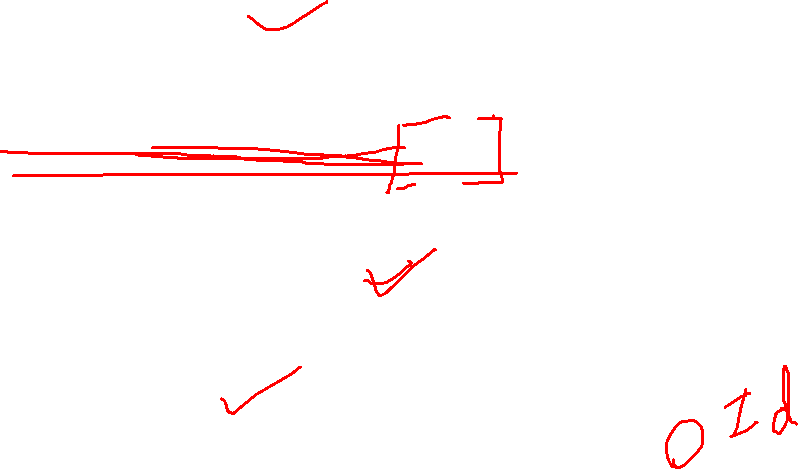 ✓
[ ]
✓
✓
O I d